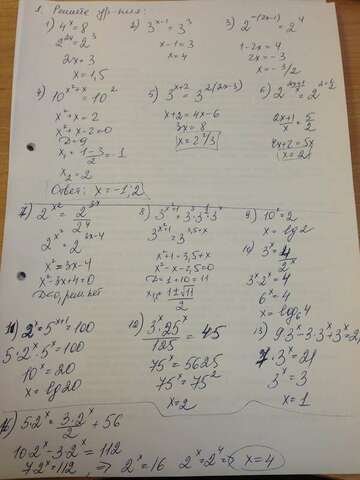 1. Решите ур-ния:
1) 4^x = 8
2^{2x} = 2^3
2x = 3
x = 1,5
2) 3^{x-1} = 3^3
x-1 = 3
x = 4
3) 2^{-(2x-1)} = 2^4
1-2x = 4
2x = -3
x = -3/2
4) 10^{x²+x} = 10^2
x²+x = 2
x²+x-2=0
D=9
x₁ = (1-3)/2 = -1
x₂ = 2
Ответ: x = -1; 2
5) 3^{x+2} = 3^{2(2x-3)}
x+2 = 4x-6
3x = 8
x = 2 2/3
(2x+1)/x = 5/2
4x+2 = 5x
x = 2
7) 2^{x²} = 2^{3x}/2^4
2^{x²} = 2^{3x-4}
x² = 3x-4
x²-3x+4=0
D<0, реш. нет
8)
x²-x-2,5=0
D=1+10=11
x₁,₂ = (1±√11)/2
9) 10^x = 2
x = lg2
3^x = 4/2^x
3^x·2^x = 4
6^x = 4
x = log₆4
5·2^x·5^x = 100
10^x = 20
x = lg20
12) 3^x·25^x/125 = 45
75^x = 5625
75^x = 75^2
x = 2
13)
7·3^x = 21
3^x = 3
x = 1
5·2^x = 3·2^x/2 + 56
10·2^x - 3·2^x = 112
7·2^x = 112, ⇒ 2^x = 16 2^x = 2^4 ⇒ x = 4